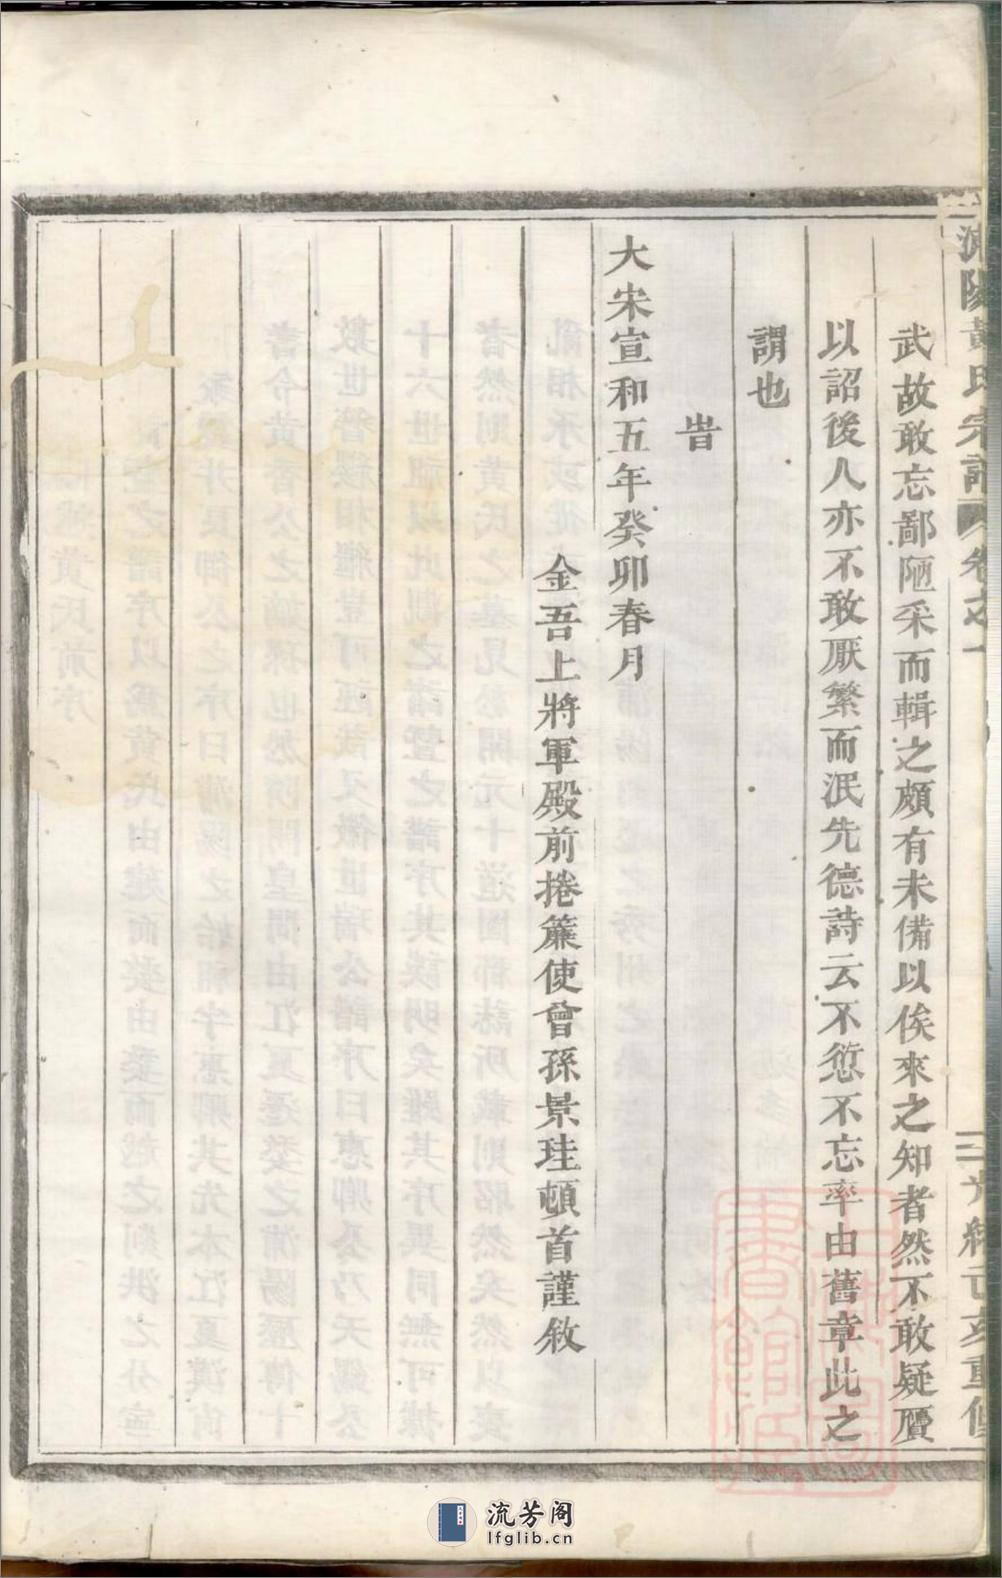 浦陽黃氏宗譜 卷之一 光緒己亥重修
武故敢忘鄙陋采而輯之頗有未備以俟來之知者然不敢疑贗
以詔後人亦不敢厭繁而泯先德詩云不愆不忘率由舊章此之
謂也
旹
大宋宣和五年癸卯春月
金吾上將軍殿前捲簾使曾孫景珪頓首謹敘
流芳阁
lfglib.cn